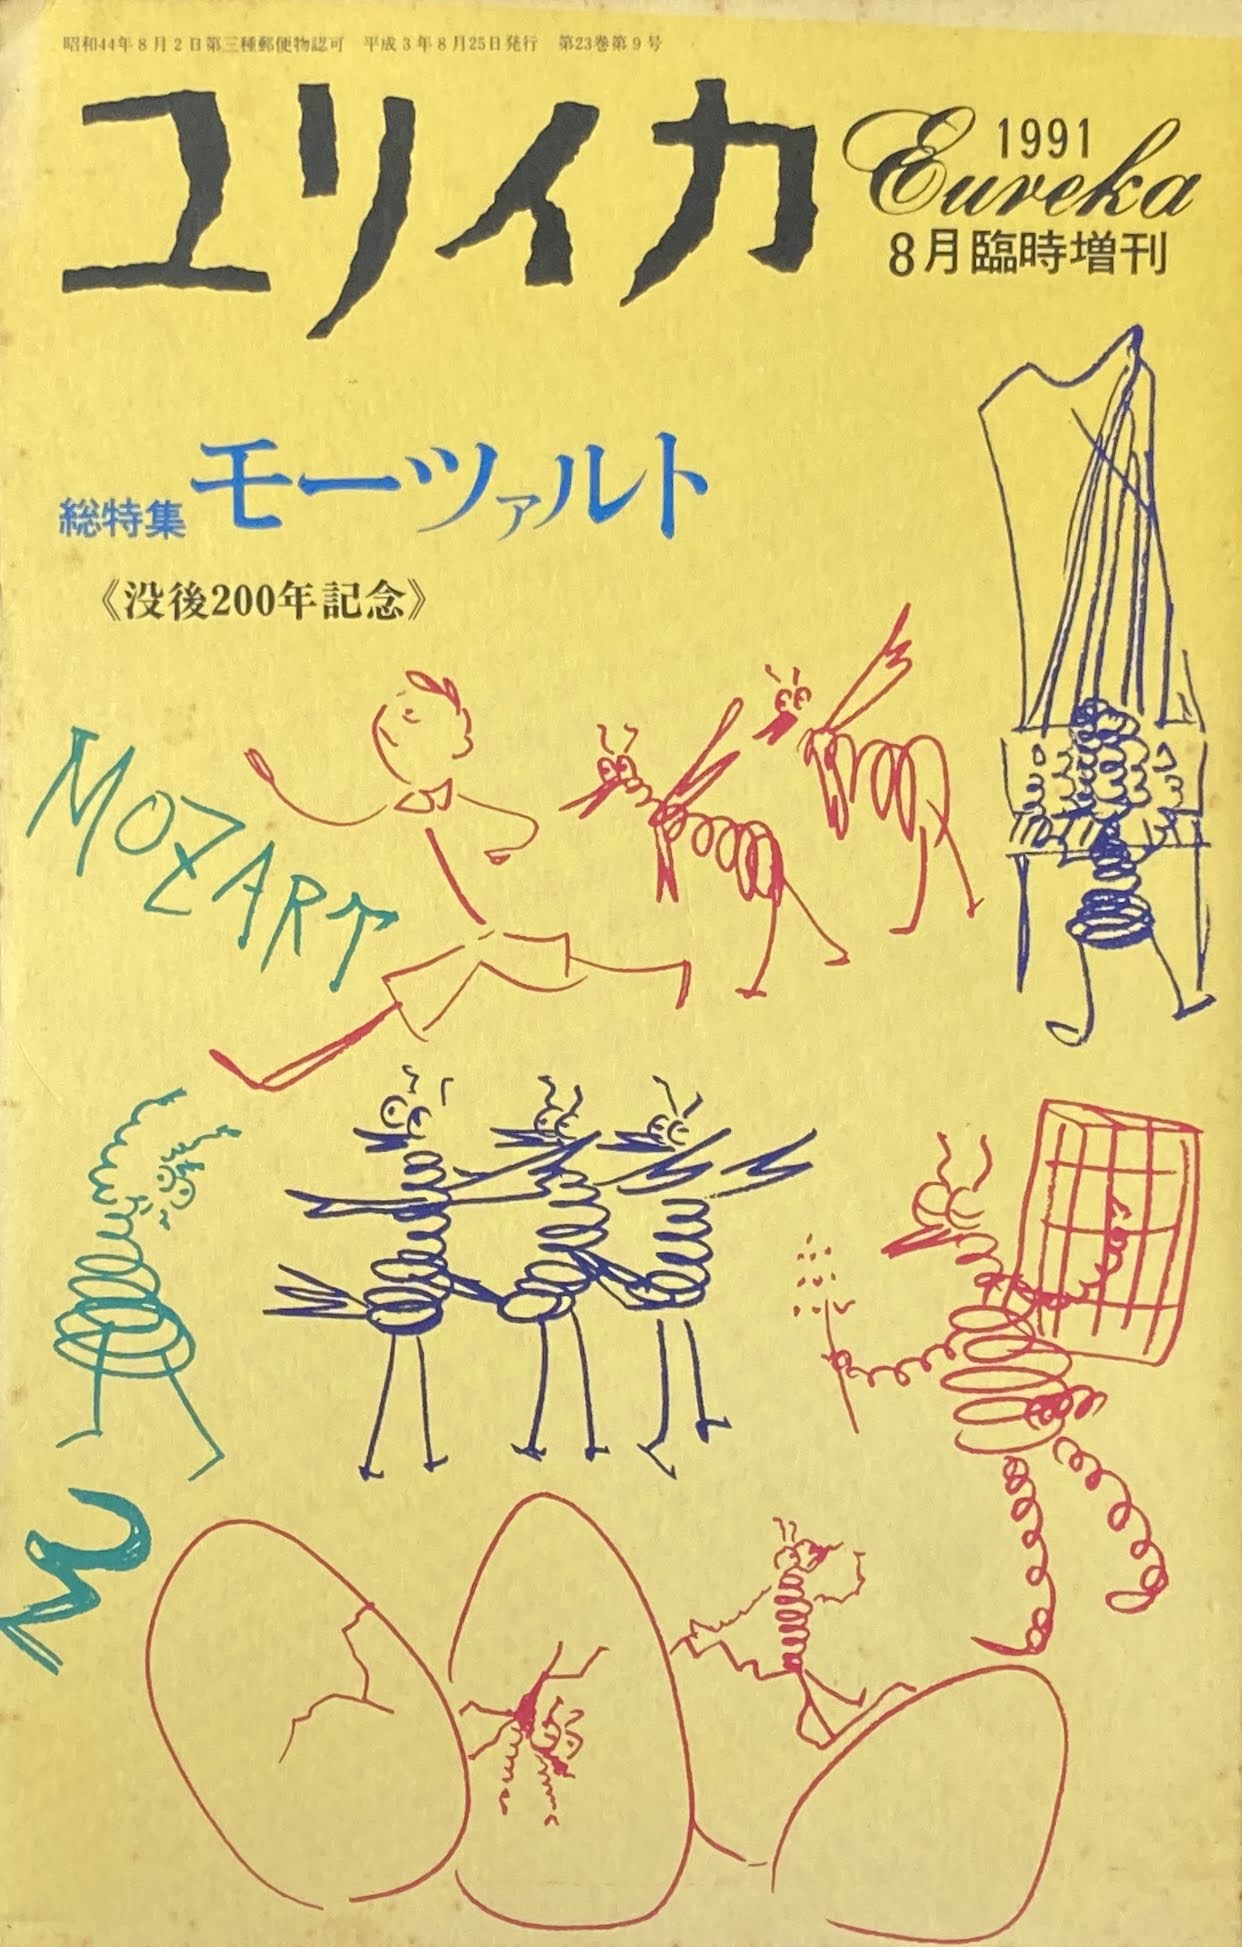 昭和44年8月2日第三種郵便物認可　平成3年8月25日発行　第23巻第9号
ユリイカ
Eureka
1991
8月臨時増刊
総特集 モーツァルト
《没後200年記念》
MOZART